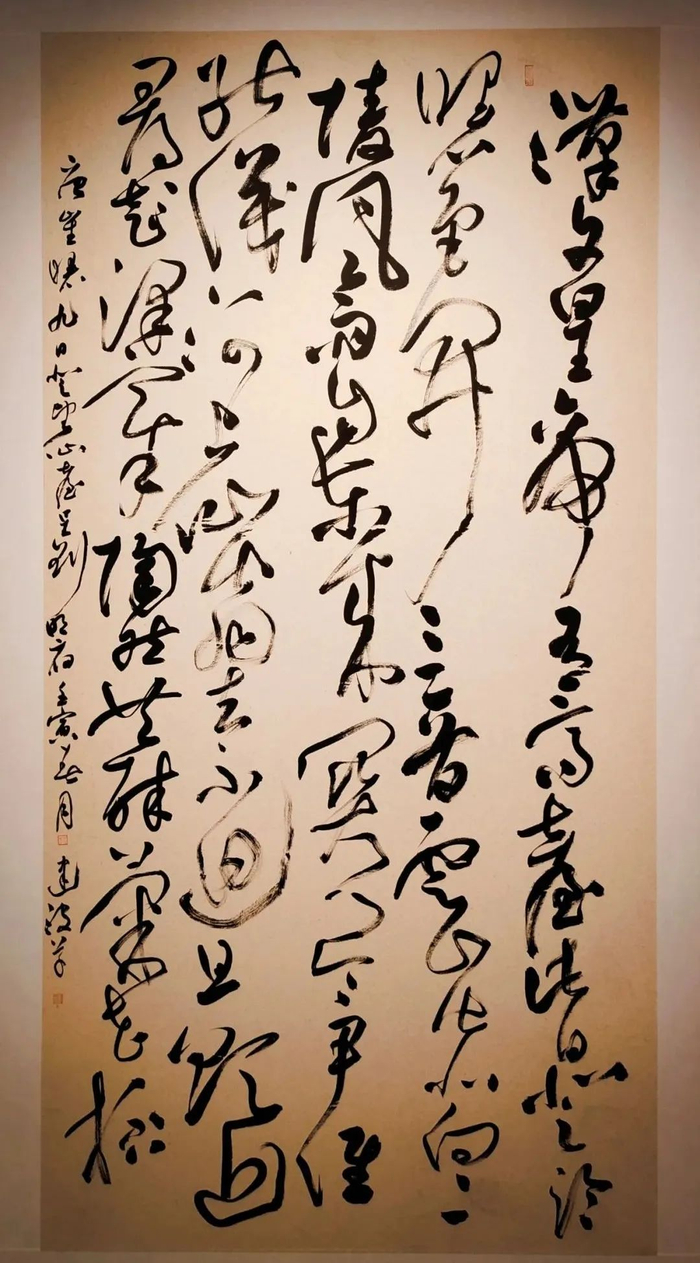 漢文皇帝有高臺此日登臨
曙色開三晉雲山皆北向二
陵風雨自東來關門令尹誰
能識河上仙翁去不迴且欲近
尋彭澤宰陶然共醉菊花杯
唐崔曙九日登望仙臺呈劉明府壬寅春月